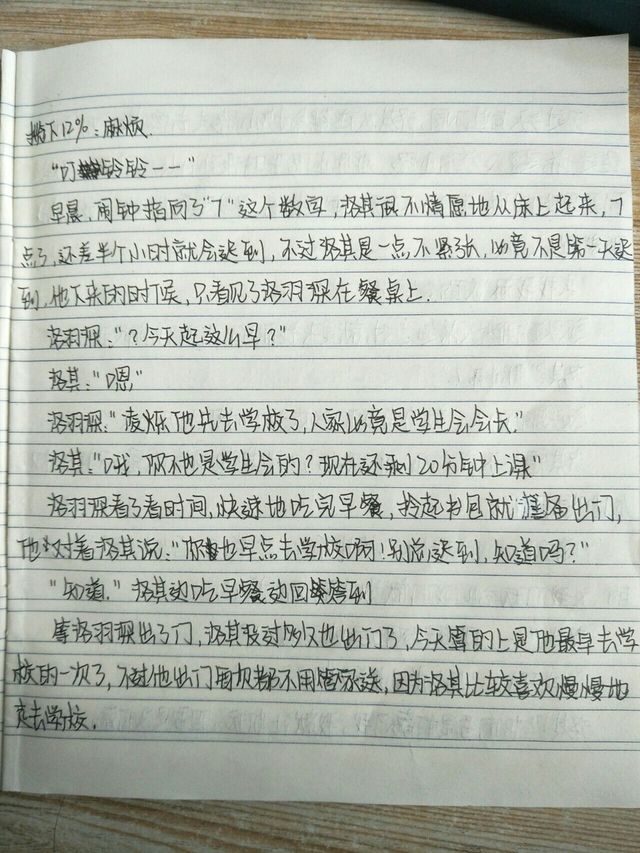 12%:麻烦.
"叮铃铃——"
早晨,闹钟指向了"7"这个数字,洛其很不情愿地从床上起来,7
点了,还差半个小时就会迟到,不过洛其是一点不紧张,必竟不是第一天迟
到,他下来的时候,只看见了洛羽琛在餐桌上.
洛羽琛:"?今天起这么早?"
洛其:"嗯"
洛羽琛:"凌烁他先去学校了,人家必竟是学生会会长."
洛其:"哦,你不也是学生会的?现在还剩20分钟上课"
洛羽琛看了看时间,快速地吃完早餐,拎起书包就准备出门,
他对着洛其说:"你也早点去学校啊!别总迟到,知道吗?"
"知道."洛其边吃早餐边回答到
等洛羽琛出了门,洛其没过多久也出门了,今天算的上是他最早去学
校的一次了,不过他出门每次都不用管家送,因为洛其比较喜欢慢慢地
走去学校.